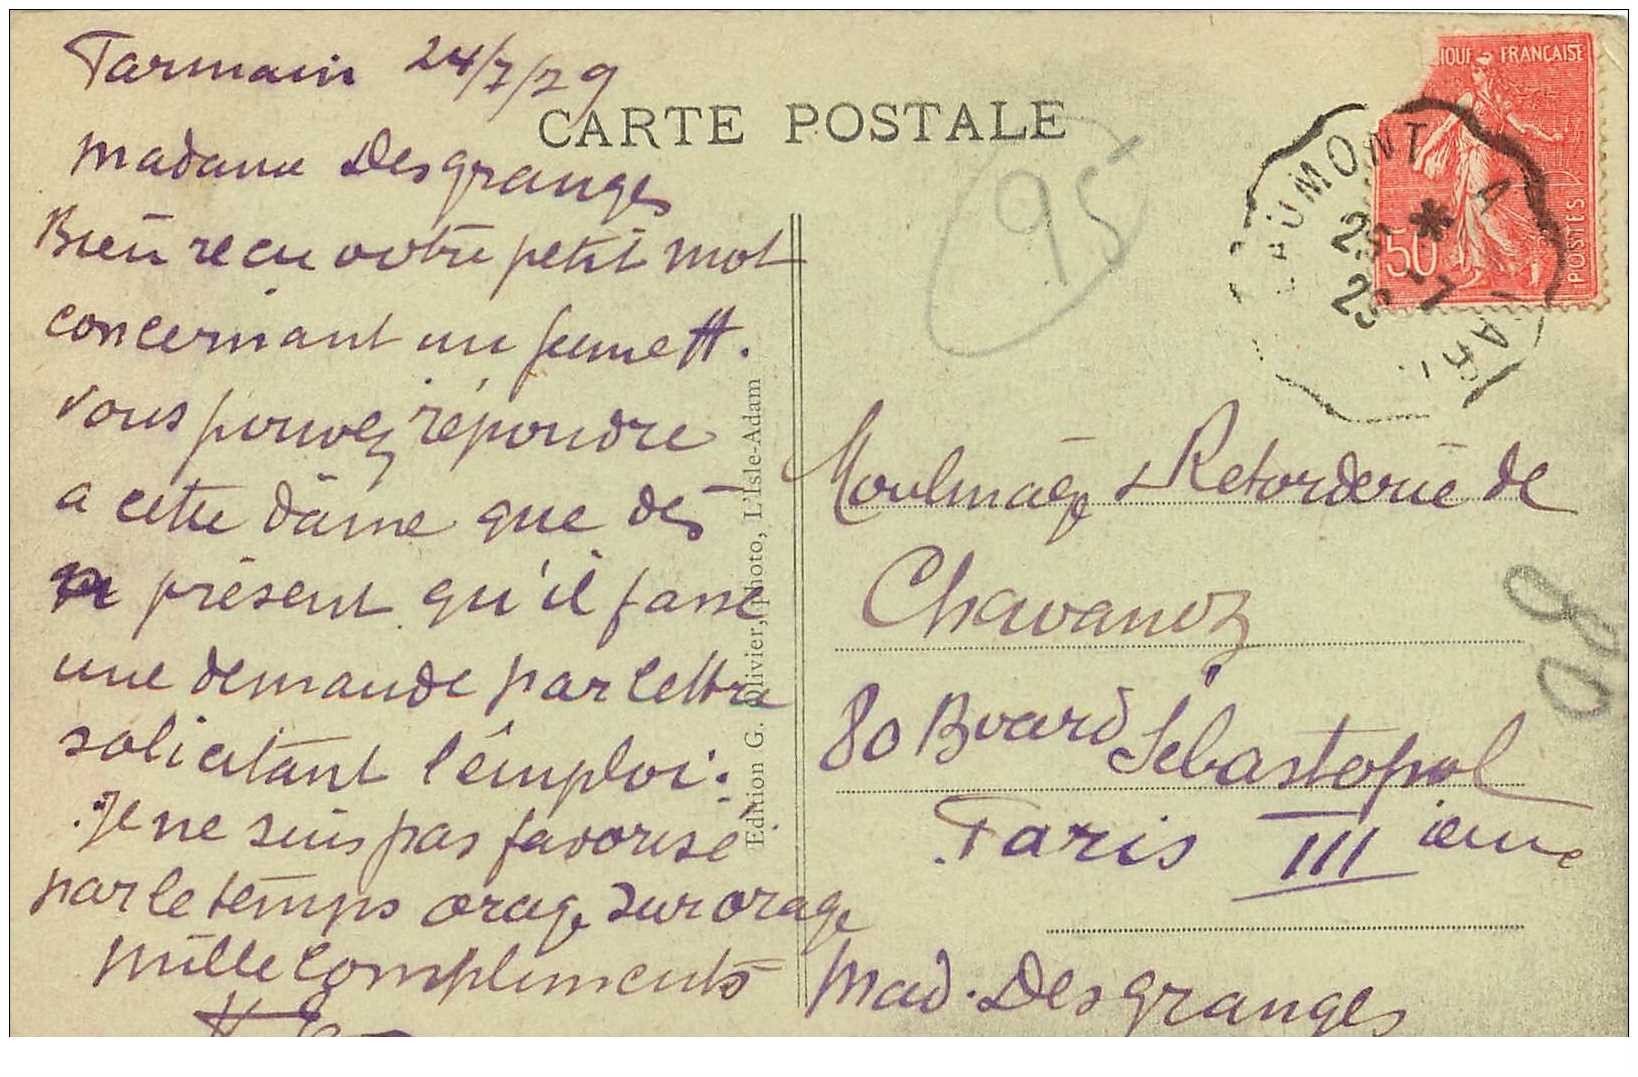 Parmain 24/7/29
CARTE POSTALE
Madame Desgranges
Bien recu votre petit mot
concernant un
Vous pouvez répondre
a cette dâme que dès
présent qu'il fasse
une demande par lettre
solicitant l'émploi.
Je ne suis pas favorisé
par le temps orage sur orage
Mille Compliments
Edition G. Olivier, photo, L'Isle-Adam
95
IQUE FRANÇAISE
50
POSTES
CHAUMONT A
Moulinage & Retorderie de
Chavanoz
80 Bvard Sébastopol
Paris III ième
Mad. Desgranges
80